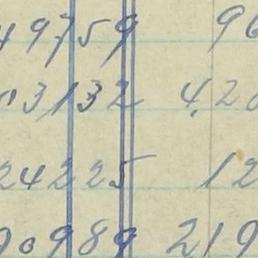 49759 96
03132 4,20
24225 12
90989 219